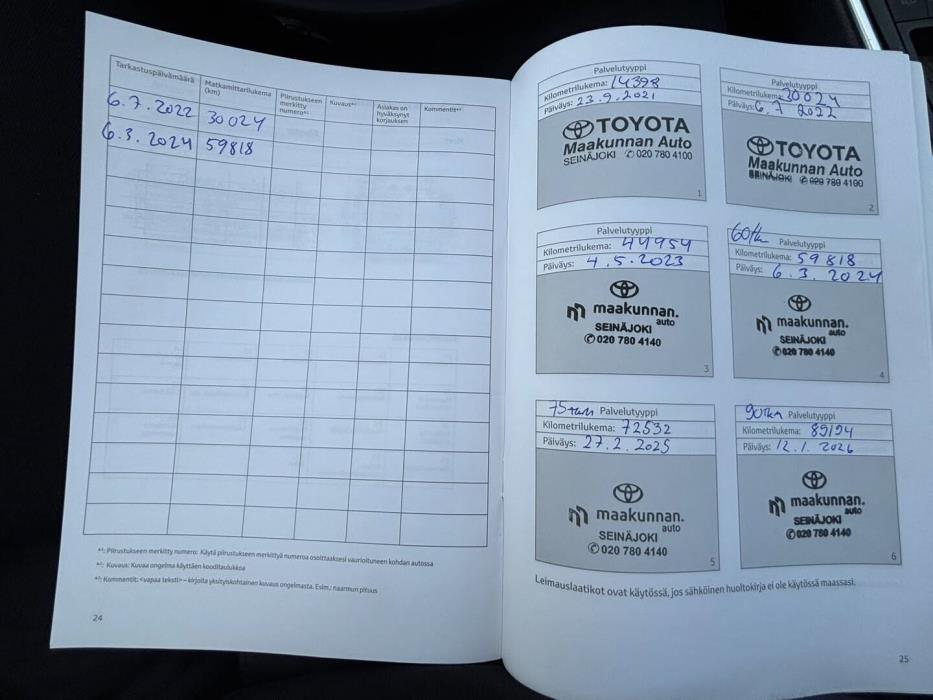 Tarkastuspäivämäärä
Matkamittarilukema (km)
Piirustukseen merkitty numero*¹
Kuvaus*²
Asiakas on hyväksynyt korjauksen
Kommentit*³
6.7.2022 30024
6.3.2024 59818
*¹: Piirustukseen merkitty numero: Käytä piirustukseen merkittyä numeroa osoittaaksesi vaurioituneen kohdan autossa
*²: Kuvaus: Kuvaa ongelma käyttäen kooditaulukkoa
*³: Kommentit: <vapaa teksti> – kirjoita yksityiskohtainen kuvaus ongelmasta. Esim.: naarmun pituus
24
Palvelutyyppi
Kilometrilukema: 14398
Päiväys: 23.9.2021
TOYOTA
Maakunnan Auto
SEINÄJOKI ✆ 020 780 4100
1
Palvelutyyppi
Kilometrilukema: 30024
Päiväys: 6.7 2022
TOYOTA
Maakunnan Auto
SEINÄJOKI ✆ 020 780 4100
2
Palvelutyyppi
Kilometrilukema: 44954
Päiväys: 4.5.2023
maakunnan.
auto
SEINÄJOKI
✆ 020 780 4140
3
60tkm Palvelutyyppi
Kilometrilukema: 59818
Päiväys: 6.3.2024
maakunnan.
auto
SEINÄJOKI
✆ 020 780 4140
4
75tkm Palvelutyyppi
Kilometrilukema: 72532
Päiväys: 27.2.2025
maakunnan.
auto
SEINÄJOKI
✆ 020 780 4140
5
90tkm Palvelutyyppi
Kilometrilukema: 89194
Päiväys: 12.1.2026
maakunnan.
auto
SEINÄJOKI
✆ 020 780 4140
6
Leimauslaatikot ovat käytössä, jos sähköinen huoltokirja ei ole käytössä maassasi.
25